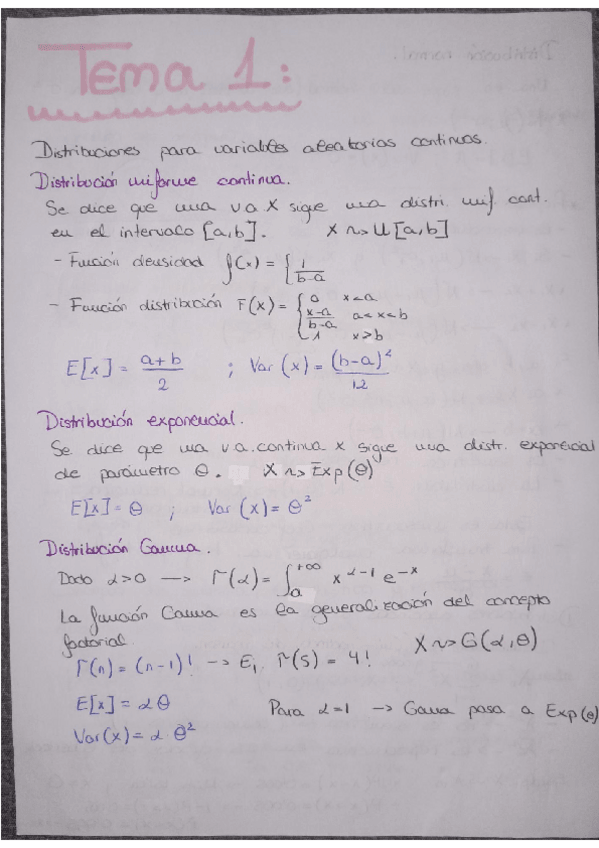 Tema 1:
Distribuciones para variables aleatorias continuas.
Distribución uniforme continua.
Se dice que una v a X sigue una distri. unif. cont.
en el intervalo [a,b]. X ~> U[a,b]
- Función densidad f(x) = { 1/(b-a)
- Función distribución F(x) = { 0 x<a
(x-a)/(b-a) a<x<b
1 x>b
E[x] = (a+b)/2 ; Var(x) = (b-a)²/12
Distribución exponencial.
Se dice que una v a. continua x sigue una distr. exponencial
de parámetro θ. X ~> Exp(θ)
E[x] = θ ; Var(x) = θ²
Distribución Gamma.
Dado α>0 —> Γ(α) = ∫ₐ^{+∞} x^{α-1} e^{-x}
La función Gamma es la generalización del concepto
factorial. X ~> G(α,θ)
Γ(n) = (n-1)! --> Ej. Γ(5) = 4!
E[x] = α θ Para α=1 -> Gama pasa a Exp(θ)
Var(x) = α · θ²